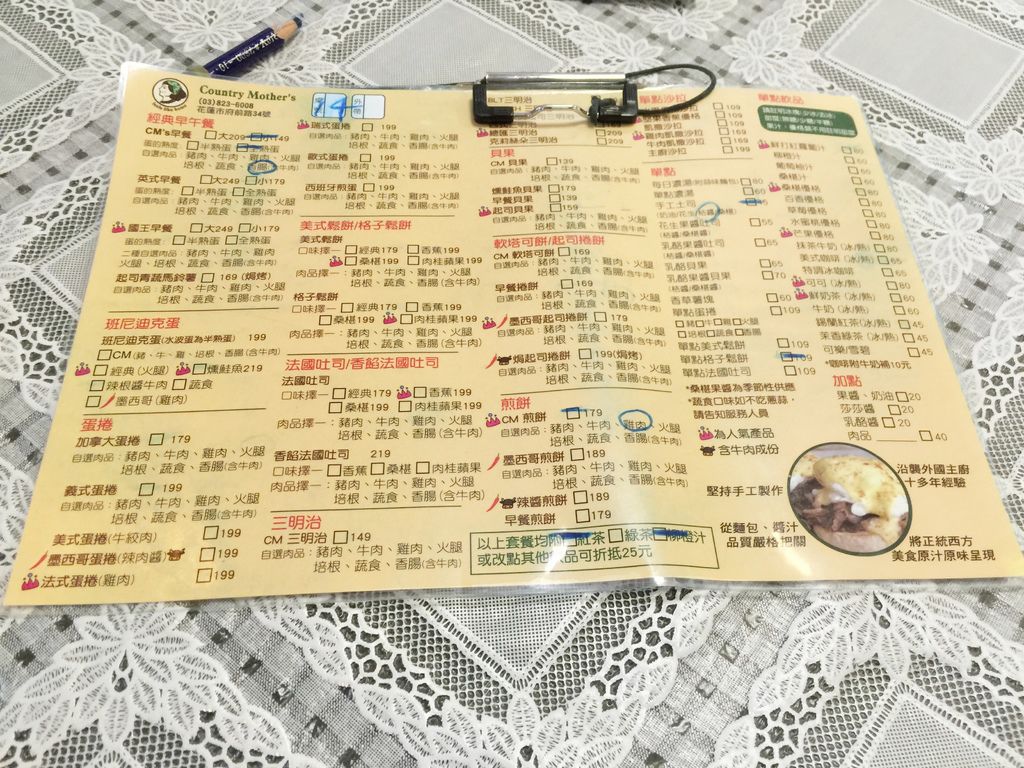 Country Mother's
(03)823-6008
花蓮市府前路34號
34
外帶
經典早午餐
CM's早餐 □大209 □小149
蛋的熟度: □半熟蛋 □全熟蛋
自選肉品: 豬肉、牛肉、雞肉、火腿
培根、蔬食、香腸(含牛肉)
英式早餐 □大249 □小179
蛋的熟度: □半熟蛋 □全熟蛋
自選肉品: 豬肉、牛肉、雞肉、火腿
培根、蔬食、香腸(含牛肉)
國王早餐 □大249 □小179
蛋的熟度: □半熟蛋 □全熟蛋
二種自選肉品: 豬肉、牛肉、雞肉
火腿、培根、蔬食、香腸(含牛肉)
起司青蔬馬鈴薯 □169 (焗烤)
自選肉品: 豬肉、牛肉、雞肉、火腿
培根、蔬食、香腸(含牛肉)
班尼迪克蛋
班尼迪克蛋(水波蛋為半熟蛋) 199
□CM(豬、牛、雞、培根、香腸(含牛肉)
□經典(火腿) □燻鮭魚219
□辣根醬牛肉 □蔬食
□墨西哥(雞肉)
蛋捲
加拿大蛋捲 □ 179
自選肉品: 豬肉、牛肉、雞肉、火腿
培根、蔬食、香腸(含牛肉)
義式蛋捲 □ 199
自選肉品: 豬肉、牛肉、雞肉、火腿
培根、蔬食、香腸(含牛肉)
美式蛋捲(牛絞肉) □199
墨西哥蛋捲(辣肉醬) □199
法式蛋捲(雞肉) □199
瑞式蛋捲 □ 199
自選肉品: 豬肉、牛肉、雞肉、火腿
培根、蔬食、香腸(含牛肉)
歐式蛋捲 □ 199
自選肉品: 豬肉、牛肉、雞肉、火腿
培根、蔬食、香腸(含牛肉)
西班牙煎蛋 □ 199
自選肉品: 豬肉、牛肉、雞肉、火腿
培根、蔬食、香腸(含牛肉)
美式鬆餅/格子鬆餅
美式鬆餅
口味擇一 □經典179 □香蕉199
□桑椹199 □肉桂蘋果199
肉品擇一: 豬肉、牛肉、雞肉、火腿
培根、蔬食、香腸(含牛肉)
格子鬆餅
口味擇一 □經典179 □香蕉199
□桑椹199 □肉桂蘋果199
肉品擇一: 豬肉、牛肉、雞肉、火腿
培根、蔬食、香腸(含牛肉)
法國吐司/香餡法國吐司
法國吐司
口味擇一 □經典179 □香蕉199
□桑椹199 □肉桂蘋果199
肉品擇一: 豬肉、牛肉、雞肉、火腿
培根、蔬食、香腸(含牛肉)
香餡法國吐司 219
口味擇一 □香蕉 □桑椹 □肉桂蘋果
肉品擇一: 豬肉、牛肉、雞肉、火腿
培根、蔬食、香腸(含牛肉)
三明治
CM 三明治 □149
自選肉品: 豬肉、牛肉、雞肉、火腿
培根、蔬食、香腸(含牛肉)
BLT三明治
總匯三明治 □209
克莉絲朵三明治 □209
貝果
CM 貝果 □139
自選肉品: 豬肉、牛肉、雞肉、火腿
培根、蔬食、香腸(含牛肉)
燻鮭魚貝果 □179
早餐貝果 □139
起司貝果 □159
自選肉品: 豬肉、牛肉、雞肉、火腿
培根、蔬食、香腸(含牛肉)
軟塔可餅/起司捲餅
CM 軟塔可餅 □169
自選肉品: 豬肉、牛肉、雞肉、火腿
培根、蔬食、香腸(含牛肉)
早餐捲餅 □169
自選肉品: 豬肉、牛肉、雞肉、火腿
培根、蔬食、香腸(含牛肉)
墨西哥起司捲餅 □179
自選肉品: 豬肉、牛肉、雞肉、火腿
培根、蔬食、香腸(含牛肉)
焗起司捲餅 □199(焗烤)
自選肉品: 豬肉、牛肉、雞肉、火腿
培根、蔬食、香腸(含牛肉)
煎餅
CM 煎餅 □179
自選肉品: 豬肉、牛肉、雞肉、火腿
培根、蔬食、香腸(含牛肉)
墨西哥煎餅 □189
自選肉品: 豬肉、牛肉、雞肉、火腿
培根、蔬食、香腸(含牛肉)
辣醬煎餅 □189
早餐煎餅 □179
以上套餐均附□紅茶 □綠茶 □柳橙汁
或改點其他飲品可折抵25元
單點沙拉
□109
堅果香蕉沙拉 □109
凱撒沙拉 □109
雞肉凱撒沙拉 □169
牛肉凱撒沙拉 □169
主廚沙拉 □169
單點
單點濃湯
手工土司 □45
(奶油/花生/桔醬/桑椹)
花生果醬吐司 □55
(桔醬/桑椹醬)
乳酪果醬吐司 □65
(桔醬/桑椹醬)
乳酪貝果
乳酪果醬貝果 □70
(桔醬/桑椹醬)
香草薯塊 □60
單點蛋捲 □100
□豬□牛□雞□火腿
□培根□蔬食□香腸
單點美式鬆餅 □109
單點格子鬆餅 □109
單點法國吐司 □109
*桑椹果醬為季節性供應
*蔬食口味如不吃蔥蒜,
請告知服務人員
為人氣產品
含牛肉成份
堅持手工製作
從麵包、醬汁
品質嚴格把關
單點飲品
鮮打紅蘿蔔汁 □80
柳橙汁 □60
葡萄柚汁 □60
桑椹汁 □60
桑椹優格 □80
百香優格 □80
草莓優格 □80
水蜜桃優格 □80
芒果優格 □80
抹茶牛奶 (冰/熱) □80
美式咖啡 (冰/熱) □65
特調冰咖啡
可可 (冰/熱) □60
鮮奶茶 (冰/熱) □60
牛奶 (冰/熱) □60
錫蘭紅茶(冰/熱) □45
茉香綠茶 (冰/熱) □45
可樂/雪碧 □45
*咖啡附牛奶補10元
加點
果醬、奶油□20
莎莎醬 □20
乳酪醬 □20
肉品 ____ □40
沿襲外國主廚
十多年經驗
將正統西方
美食原汁原味呈現